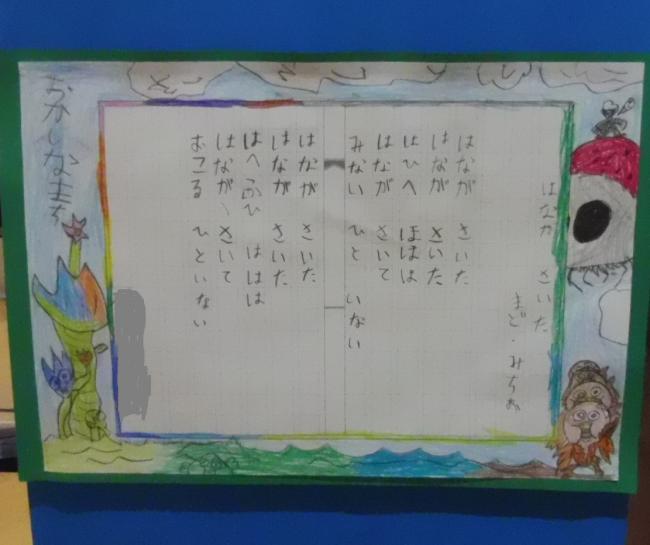 はなが さいた
まど・みちお
はなが さいた
はなが さいた
はひへ ほほは
はなが さいて
みない ひと いない
はなが さいた
はなが さいた
はへふひ ははは
はなが、さいて
おこる ひといない
おかしなまち